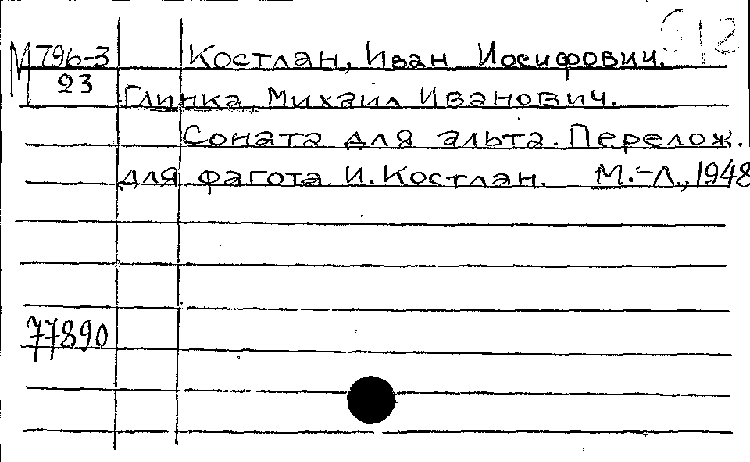 М 796-3 Костлан, Иван Иосифович.
23 Глинка, Михаил Иванович.
Соната для альта. Перелож.
для фагота И. Костлан. М.-Л., 1948
77890